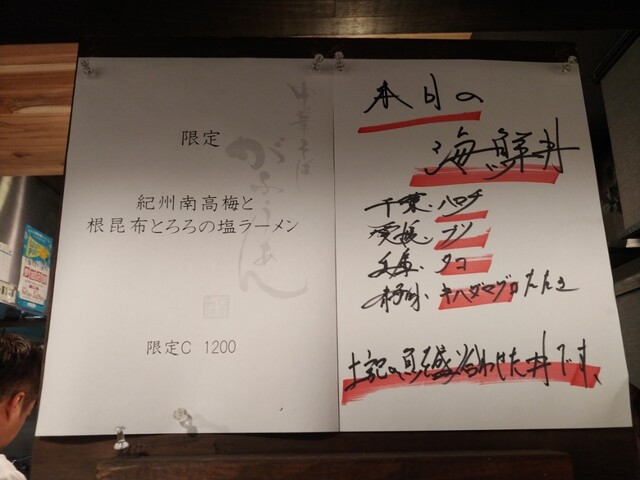 限定
紀州南高梅と
根昆布とろろの塩ラーメン
限定C 1200
中華そば
がふうあん
本日の
海鮮丼
千葉、ハマチ
愛媛、ブリ
兵庫、タコ
キハダマグロたたき
上記の魚を盛り合わせた丼です。